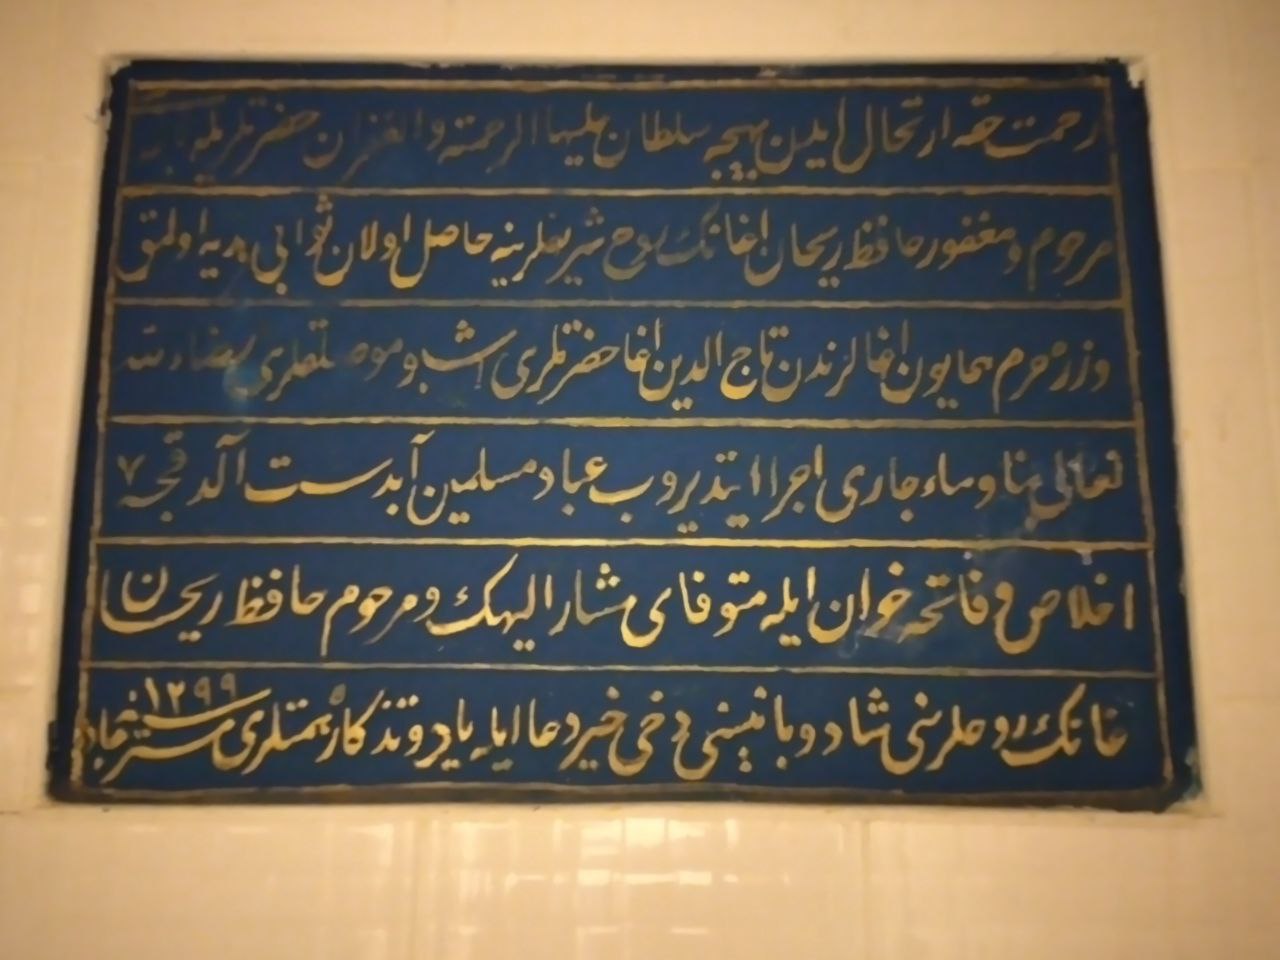 رحمت حقه ارتحال ايدن بهيجه سلطان عليها الرحمته والغفران حضرتلريله
مرحوم و مغفور حافظ ريحان اغانك روح شريفلرينه حاصل اولان ثوابى هديه اولنق
وزره حرم همايون اغالرندن تاج الدين اغا حضرتلرى اشبو موصلقلرى
تعالى بنا وماء جارى اجرا ايتديروب عباد مسلمين آبدست آلدقجه ٧
اخلاص و فاتحه خوان ايله متوفاى مشار اليهك و مرحوم حافظ ريحان
غانك روحلرينى شاد و بانيسنى دخى خير دعا ايله ياد و تذكار بمتلرى مسترجادر سنه ١٢٩٩